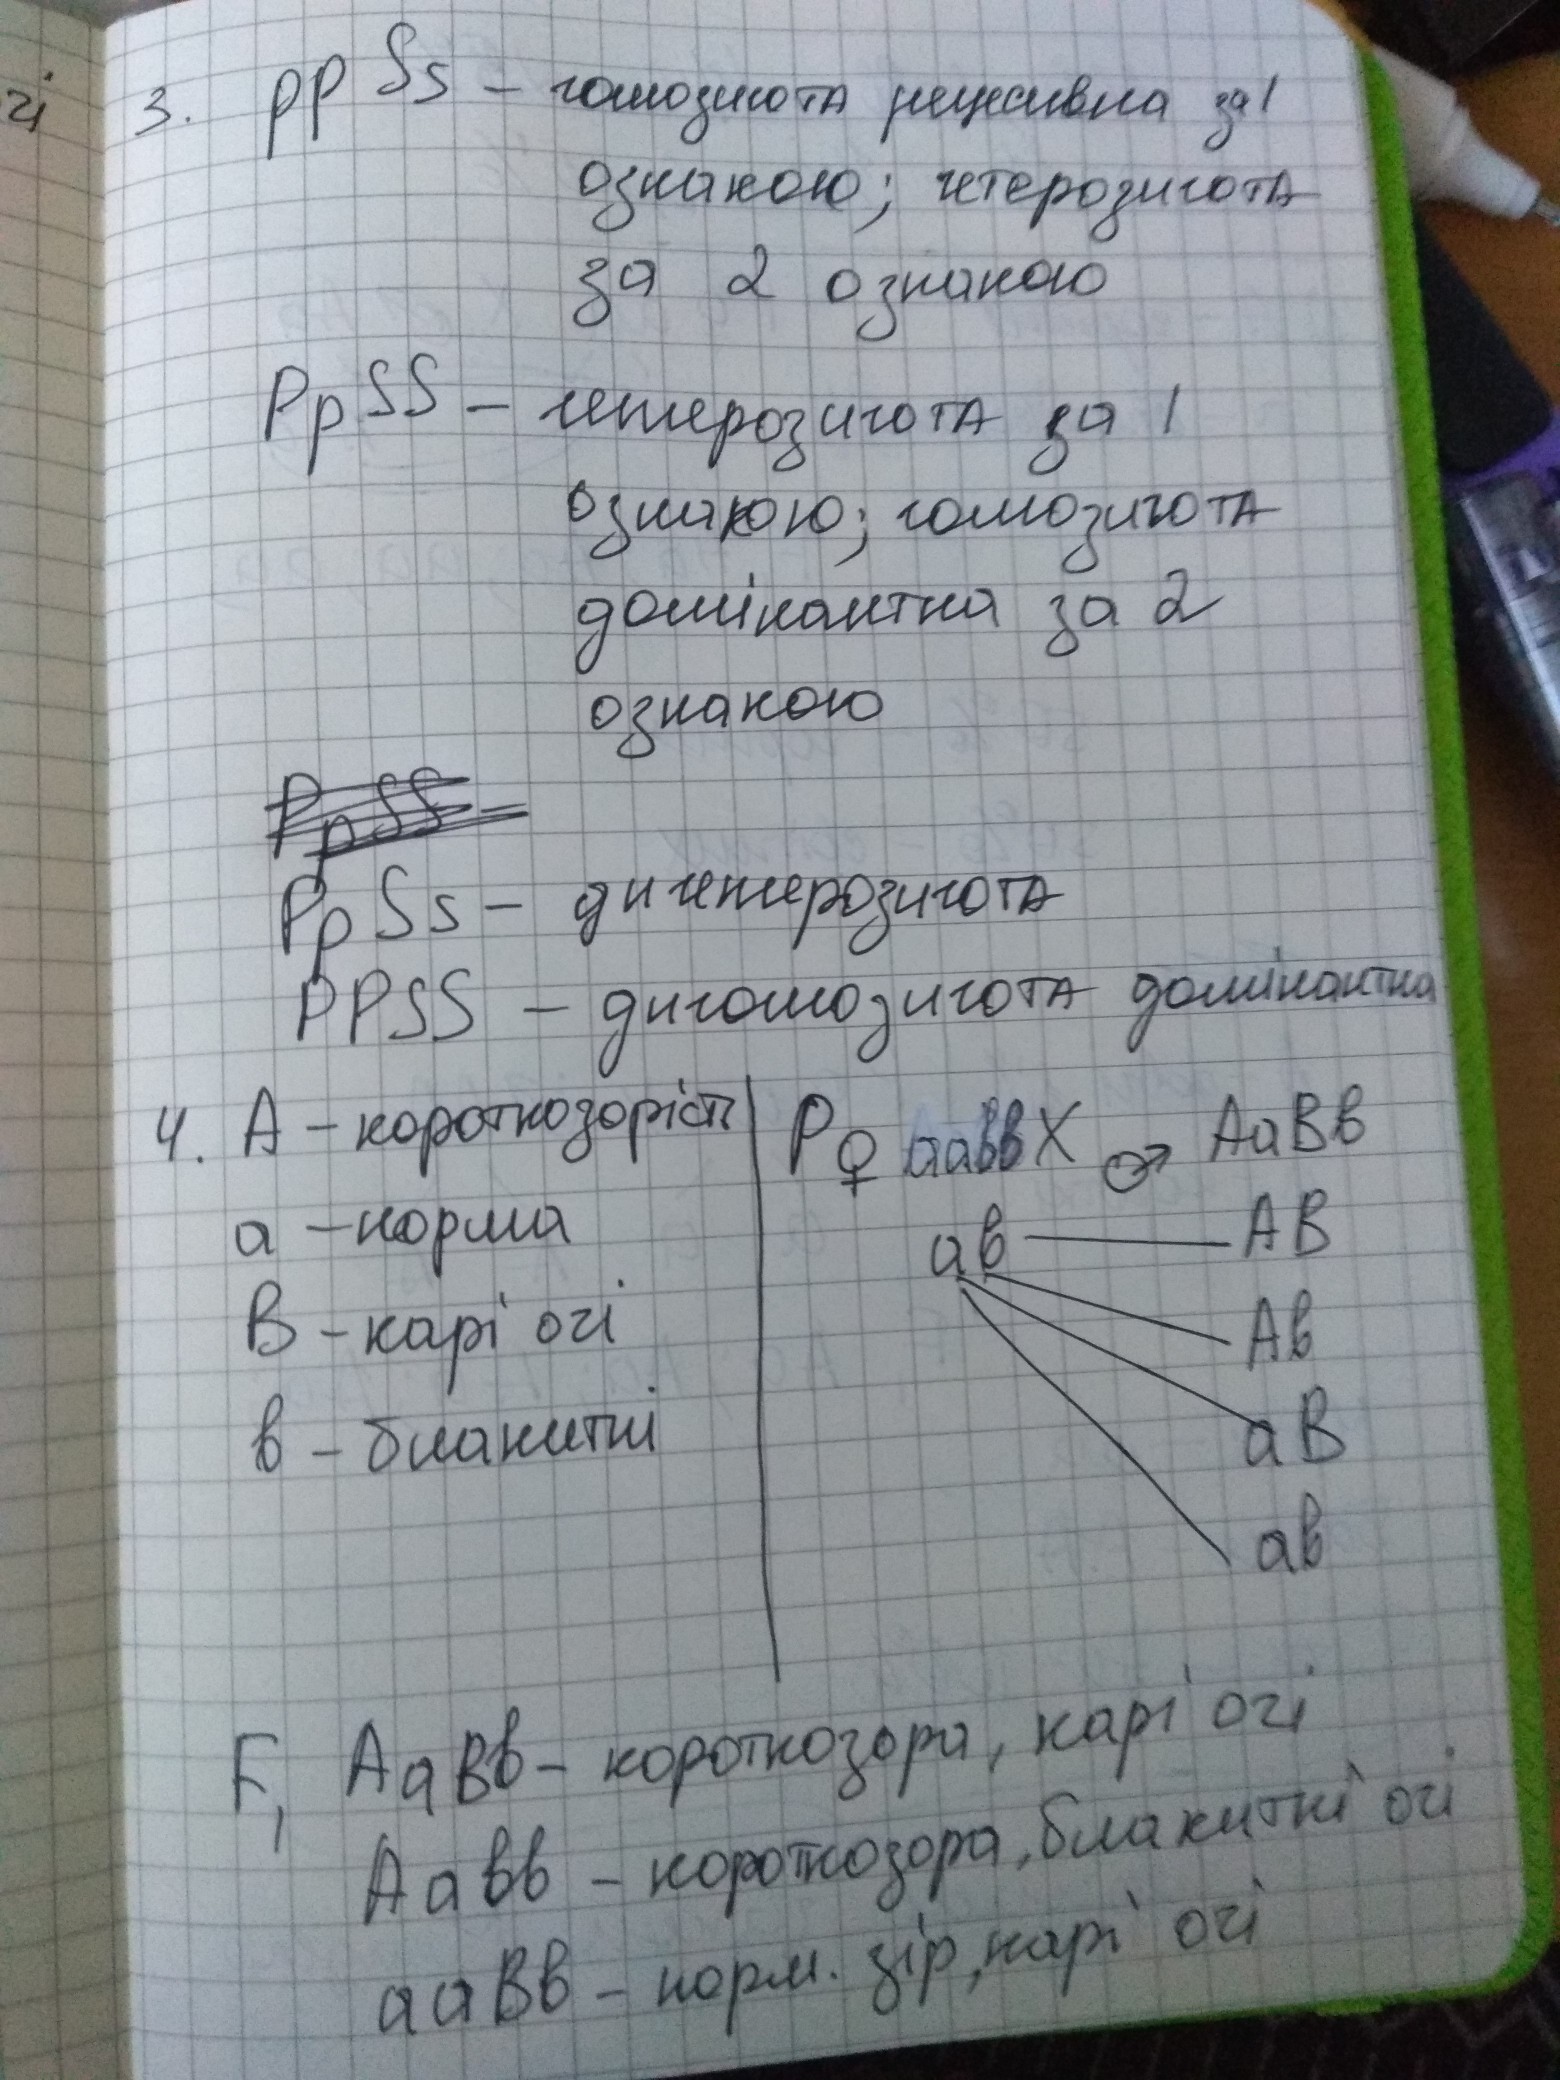 гі
3. pp Ss – гомозигота рецесивна за 1
ознакою; гетерозигота
за 2 ознакою
Pp SS – гетерозигота за 1
ознакою; гомозигота
домінантна за 2
ознакою
PpSS –
Pp Ss – дигетерозигота
PPSS – дигомозигота домінантна
4. А – короткозорість
а – норма
В – карі очі
в – блакитні
P ♀ аавв X ♂ АаВв
ав АВ
Ав
аВ
ав
F1 АаВв – короткозора, карі очі
Аавв – короткозора, блакитні очі
ааВв – норм. зір, карі очі